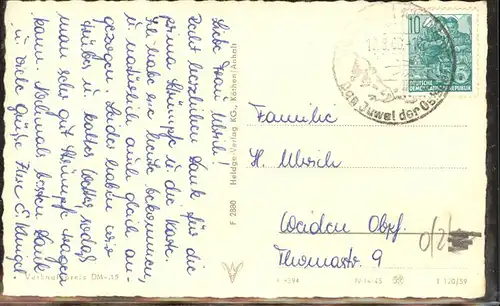 Liebe Frau Ulrich!
Recht herzlichen Dank für die
prima Strümpfe u. die Karte.
Ich habe sie heute bekommen,
u. natürlich auch gleich an-
gezogen. Leider haben wir
trübes u. kaltes Wetter, sodaß
man sehr gut Strümpfe tragen
kann. Nochmals besten Dank
u. viele Grüße Ihre E.
Verkaufspreis DM -.15
F 2880 Heldge-Verlag KG., Köthen/Anhalt
10
DEUTSCHE
DEMOKRATISCHE REPUBLIK
Das Juwel der
Familie
H. Ulrich
Weiden Opf.
Thomastr. 9
IV-14-45